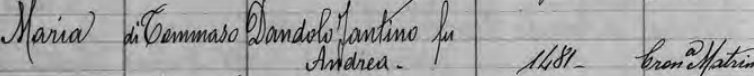 Maria di Tommaso Dandolo Fantino fu
Andrea. 1481- Cron.ª Matrim